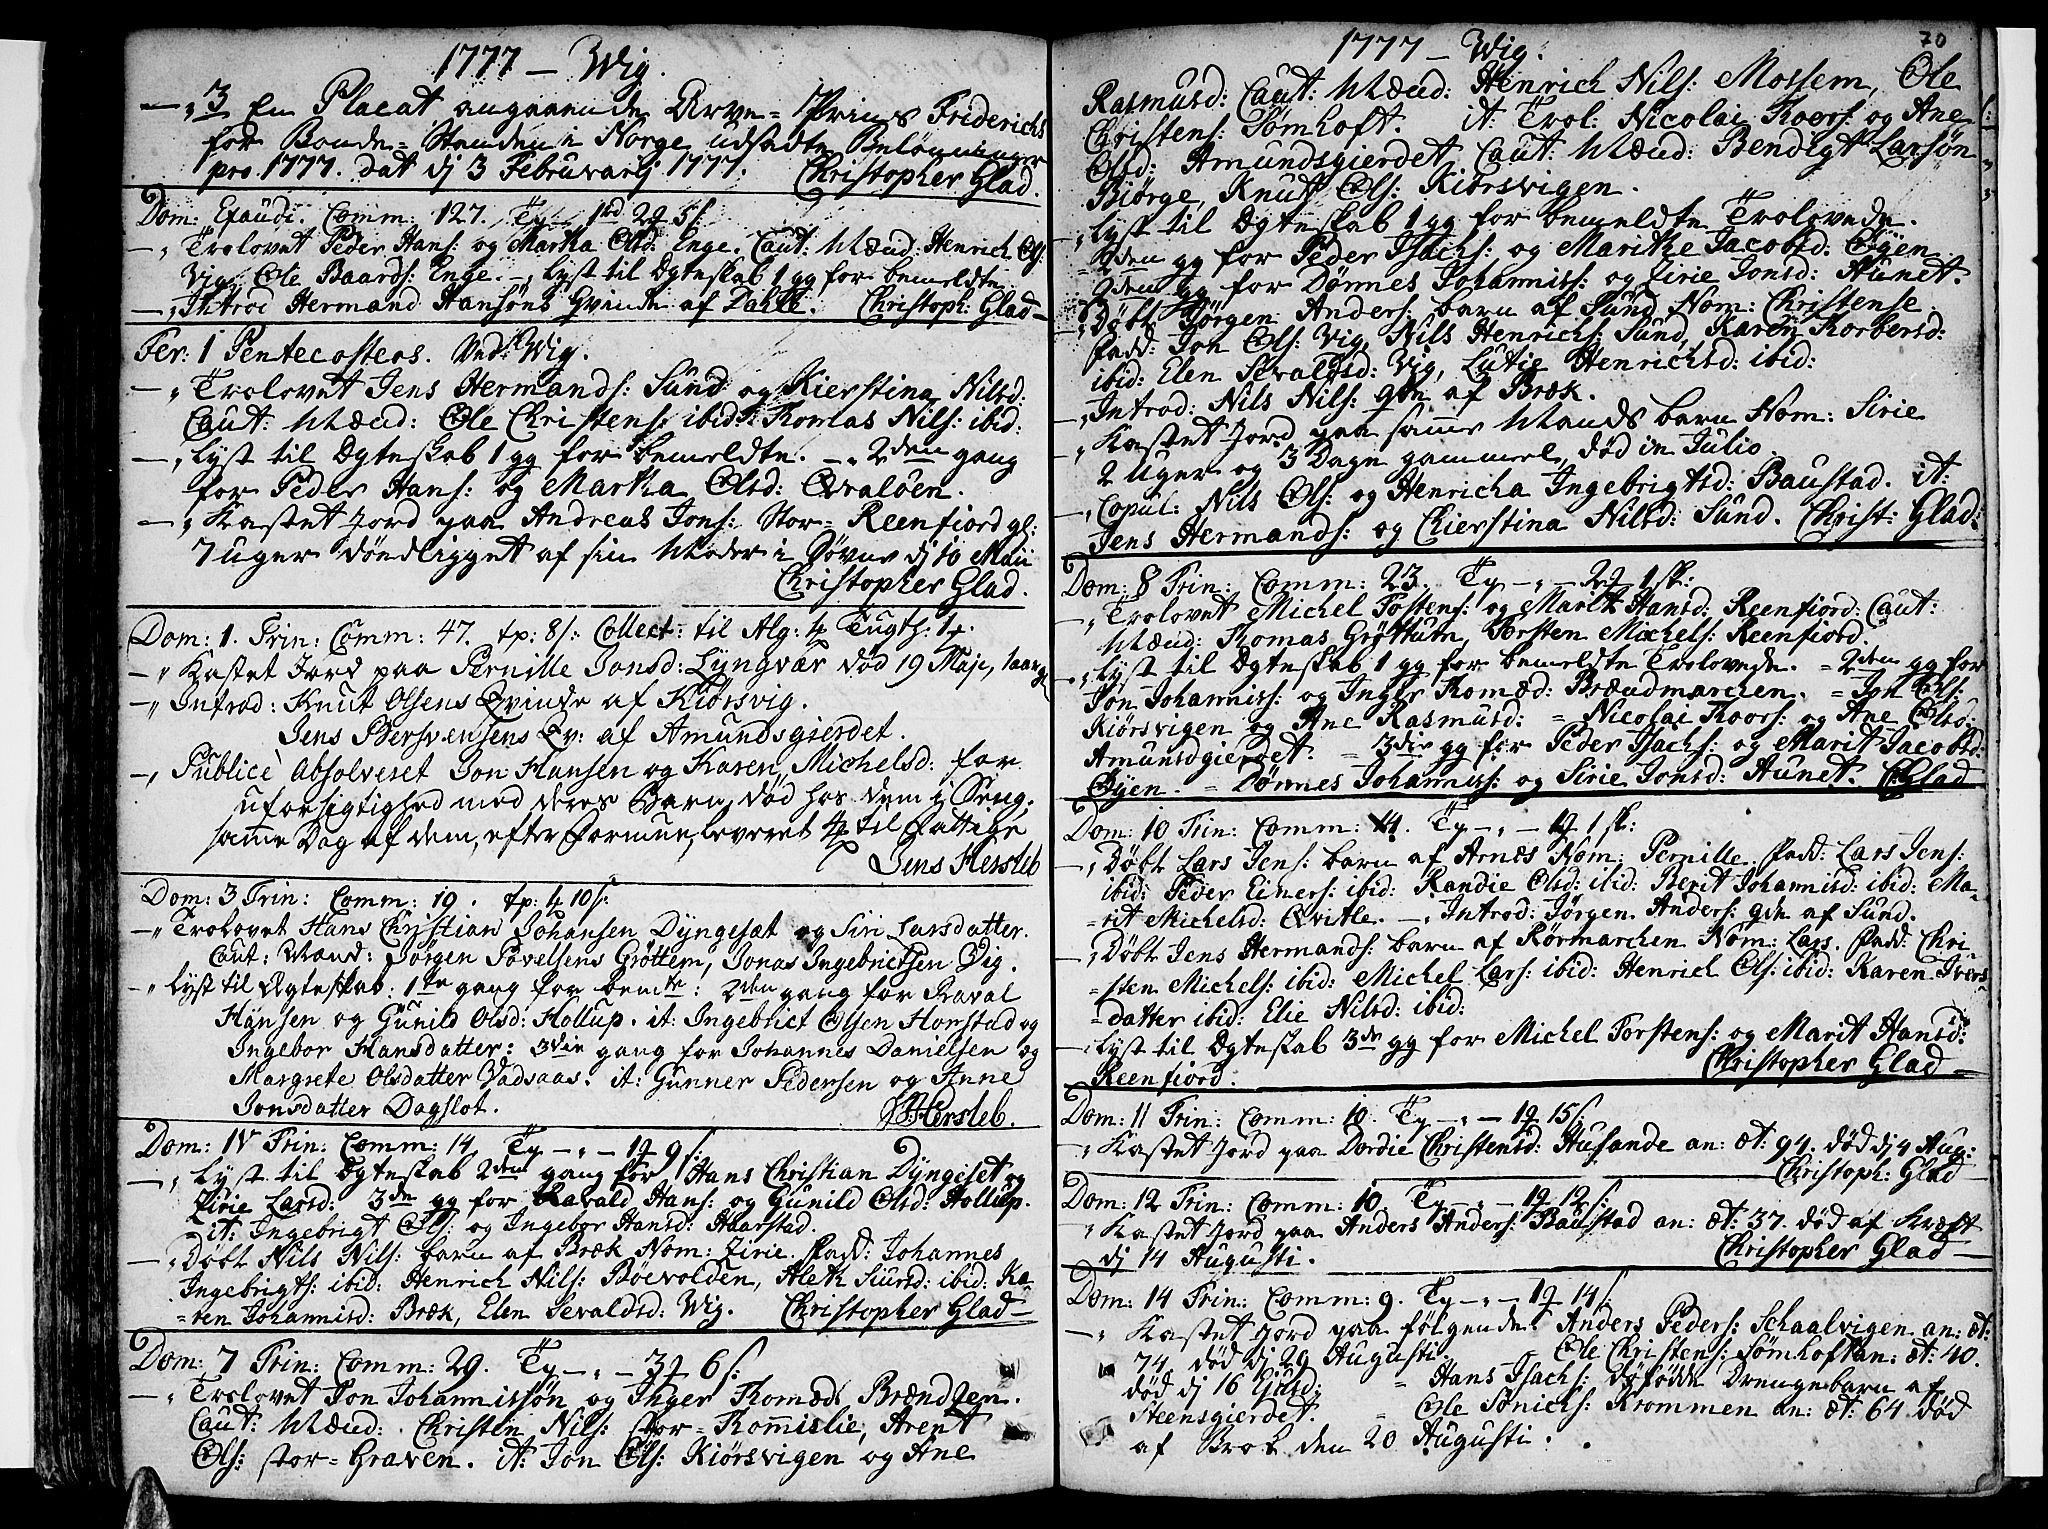 1777 – Wig.
–„ 3 En Placat, angaaende Arve-Prins Friderichs
for Bonde-Standen i Norge udsadte Belønninger
pro 1777. dat dj 3 Februarij 1777. Christopher Glad.
Dom: Exaudi. Comm: 127. Tp – 1rd 2# 5s
–„ Trolovet Peder Hans: og Martha Olsd: Enge. Caut: Mænd: Henrich Ols:
Vig, Ole Baards: Enge. –„ Lyst til Ægteskab 1 gg for bemeldte.
–„ Introd Hermand Hansøns Qvinde af Dahle. Christoph: Glad –
Fer: 1 Pentecostes. Ved Wig.
–„ Trolovet Jens Hermands: Sund og Kierstina Nilsd:
Caut: Mænd: Ole Christens: ibid: Thomas Nils: ibid:
–„ Lyst til Ægteskab 1 gg for bemeldte. –„ 2den gang
for Peder Hans: og Martha Olsd: Qvaløen.
–„ Kastet Jord paa Andreas Jons: Stor-Reenfiord gl:
7 uger döndligget af sin Moder i Søvne dj 10 Maii
Christopher Glad.
Dom: 1. Trin: Comm: 47. tp: 8s: Collect: til Alg: 4 Tugth: 1#.
–„ Kastet Jord paa Pernille Jonsd: Lyngvær død 19 Maje, 1 aar gl
–„ Introd: Knut Olsens Qvinde af Kiörsvig.
Jens Bersvensens Qv: af Amundsgierdet.
–„ Publicè Absolveret Jon Hansen og Karen Michelsd: for
uforsigtighed med deres Barn, død hos dem i Seng;
same Dag af dem, efter Formue, leveret 4# til Fattige
Jens Hersleb
Dom: 3 Trin: Comm: 19. tp: 4 10s:
–„ Trolovet Hans Christian Johansen Dyngesæt og Siri Larsdatter.
Caut: Mænd: Jörgen Povelsens Gröttem, Jonas Ingebrictsen Vig.
–„ Lyst til Ægteskab: 1te gang for bemte: 2den gang for Raval
Hansen og Gunild Olsd: Hollup. it: Ingebrict Olsen Horstad og
Ingebor Hansdatter: 3die gang for Johannes Danielsen og
Margrete Olsdatter Vadsaas. it: Gunner Pedersen og Anne
Jonsdatter Dagslot. JHersleb.
Dom: IV Trin: Comm: 14. Tp –„– 1# 9s:
–„ Lyst til Ægteskab 2den gang for Hans Christian Dyngeset og
Zirie Larsd: 3de gg for Ravald Hans: og Gunild Olsd: Hollup.
it: Ingebrigt Ols: og Ingebor Hansd: Haarstad.
–„ Døbt Nils Nils: barn af Bræk Nom: Zirie. Fadd: Johannes
Ingebrigts: ibid: Henrich Nils: Böevolden, Aleth Siursd: ibid: Ka-
-ren Johannisd: Bræk, Elen Sevaldsd: Wig. Christopher Glad –
Dom: 7 Trin: Comm: 29. Tp –„– 3# 6s:
–„ Trolovet Jon Johannissøn og Inger Thomæd: Brændzen.
Caut: Mænd: Christen Nils: stor-Thomislie, Arent
Ols: stor-Graven. it: Jon Ols: Kiörsvigen og Ane
1777 – Wig. 70
Rasmusd: Caut: Mænd: Henrich Nils: Mossem, Ole
Christens: Sømhoft. it: Trol: Nicolai Thoers: og Ane
Olsd: Amundsgierdet Caut: Mænd: Bendigt Larsøn
Biørge, Knut Ols: Kiörsvigen.
–„ Lyst til Ægteskab 1 gg for bemeldte Trolovede.
= 2den gg for Peder Isachs: og Marithe Jacobsd: Øÿen
2den gg for Dønnes Johanniss: og Zirie Jonsd: Aunet.
–„ Døbt Jörgen Anders: barn af Sund Nom: Christense
Fadd: Jon Ols: Vig, Nils Henrichs: Sund, Karen Thorbersd:
ibid: Elen Sevaldsd: Vig, Lutie Henrichsd: ibid:
–„ Introd: Nils Nils: qde af Bræk.
–„ Kastet Jord paa same Mands barn Nom: Sirie
2 Uger og 3 Dage gammel, død in Julio.
–„ Copul: Nils Ols: og Henricha Ingebrigtsd: Baustad. it:
Jens Hermands: og Chierstina Nilsd: Sund. Christ: Glad:
Dom: 8 Trin: Comm: 23. Tp –„– 2# 1sk:
–„ Trolovet Michel Tostens: og Marit Hansd: Reenfiord: Caut:
Mænd: Thomas Grøttum, Torsten Michels: Reenfiord.
–„ Lyst til Ægteskab 1 gg for bemeldte Trolovede. = 2den gg for
Jon Johanniss: og Inger Thomæd: Brændmarchen. = Jon Ols:
Kiörsvigen og Ane Rasmusd: = Nicolai Thoers: og Ane Olsd:
Amunsdgierdet. = 3die gg for Peder Isachs: og Marit Jacobsd:
Øÿen. = Dønnes Johanniss: og Sirie Jonsd: Aunet. CGlad
Dom: 10 Trin: Comm: 14. Tp –„– 1# 1sk:
–„ Døbt Lars Jens: barn af Arnæs Nom: Pernille. Fadd: Lars Jens:
ibid: Peder Einers: ibid: Randie Olsd: ibid: Berit Johannisd: ibid: Ma-
=rit Michelsd: Qvitle. –„ Introd: Jörgen Anders: qde af Sund.
–„ Døbt Jens Hermands: barn af Rörmarchen Nom: Lars. Fadd: Chri-
=sten Michels: ibid: Michel Lars: ibid: Henrich Ols: ibid: Karen Ivers
=datter ibid: Elie Nilsd: ibid:
–„ Lyst til Ægteskab 3de gg for Michel Torstens: og Marit Hansd:
Reenfiord. Christopher Glad –
Dom: 11 Trin: Comm: 10. Tp –„– 1# 15s:
–„ Kastet Jord paa Dordie Christensd: Husande an: æt: 94. død dj 4 Aug:
Christoph: Glad –
Dom: 12 Trin: Comm: 10. Tp –„– 1# 12s:
–„ Kastet Jord paa Anders Anders: Baustad an: æt: 37. død af Kræft
dj 14 Augusti. Christopher Glad –
Dom: 14 Trin: Comm: 9. Tp –„– 1# 14s:
–„ Kastet Jord paa følgende. Anders Peders: Schaalvigen an: æt:
74. død dj 29 Augusti. Ole Christens: Sömhoft an: æt: 40.
død dj 16 = Hans Isachs: døfödde Drengebarn af
Steensgierdet. = Ole Sönichs: Krommen an: æt: 64. død
af Brok den 20 Augusti.